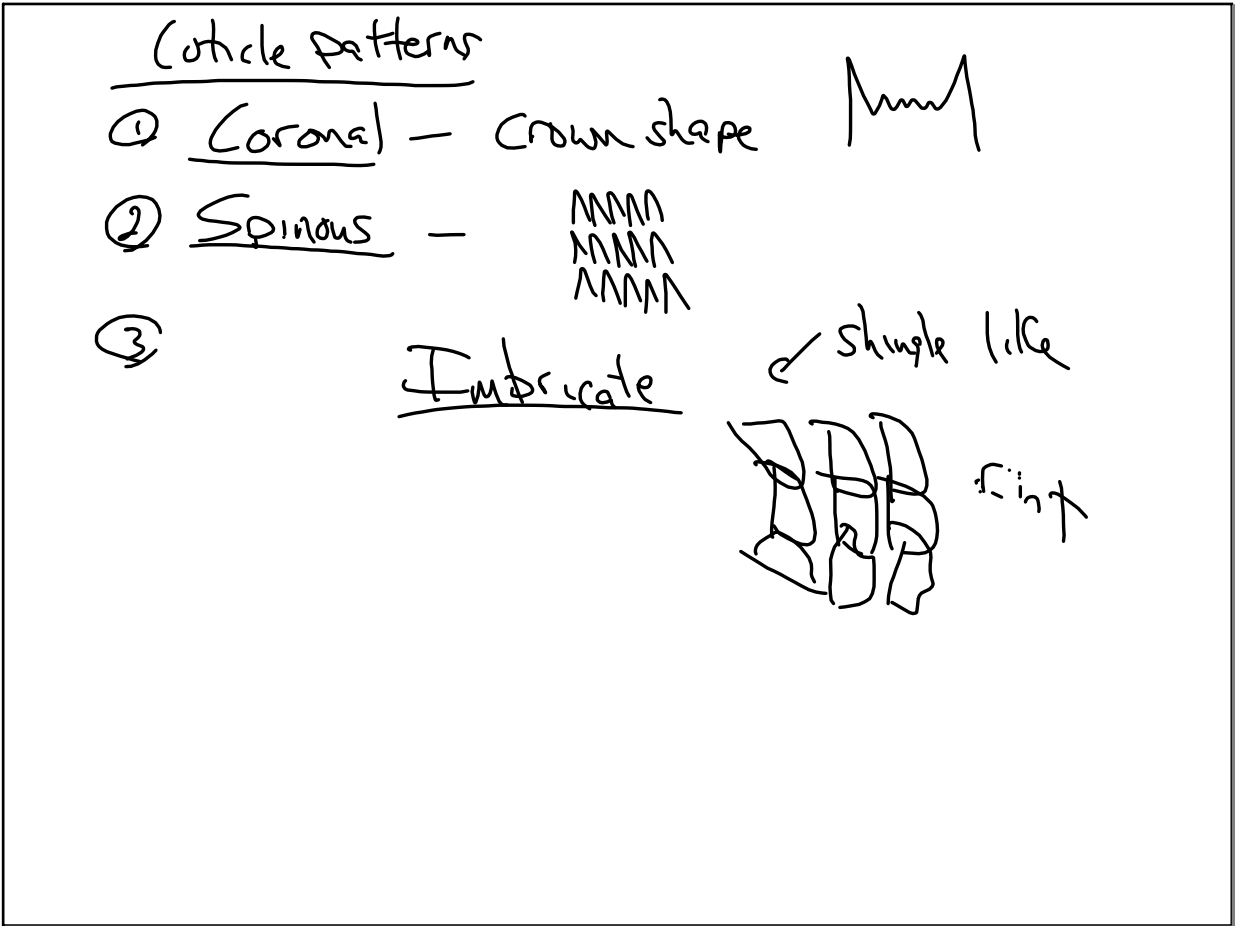 Cuticle patterns
① Coronal — crown shape
② Spinous —
③ Imbricate
shingle like